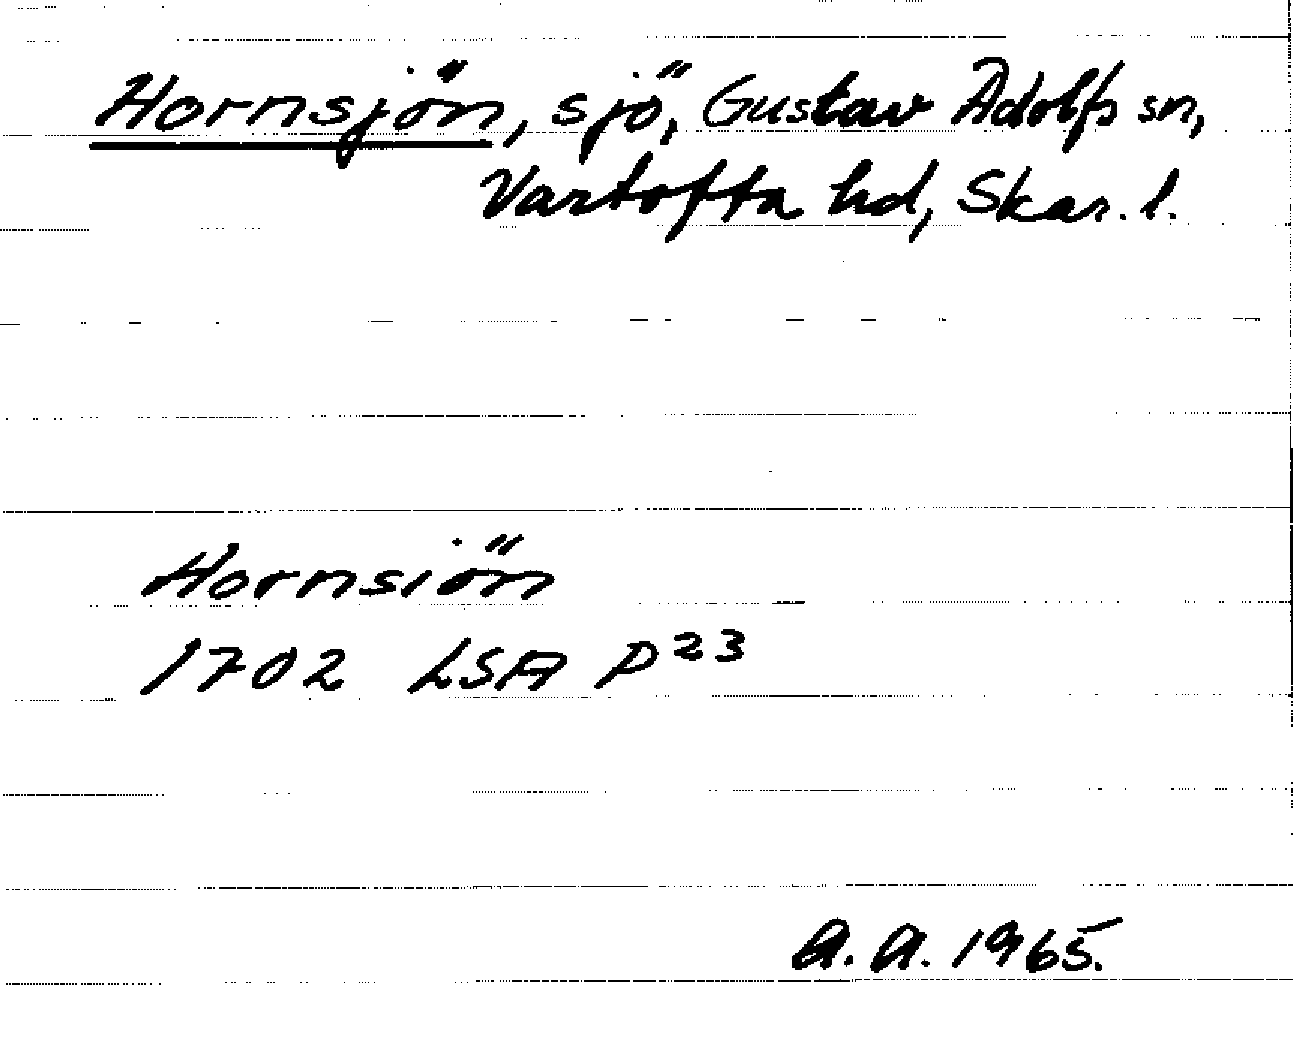 Hornsjön, sjö, Gustav Adolfs sn,
Vartofta hd, Skar. l.
Hornsiön
1702 LSA P²³
A. A. 1965.